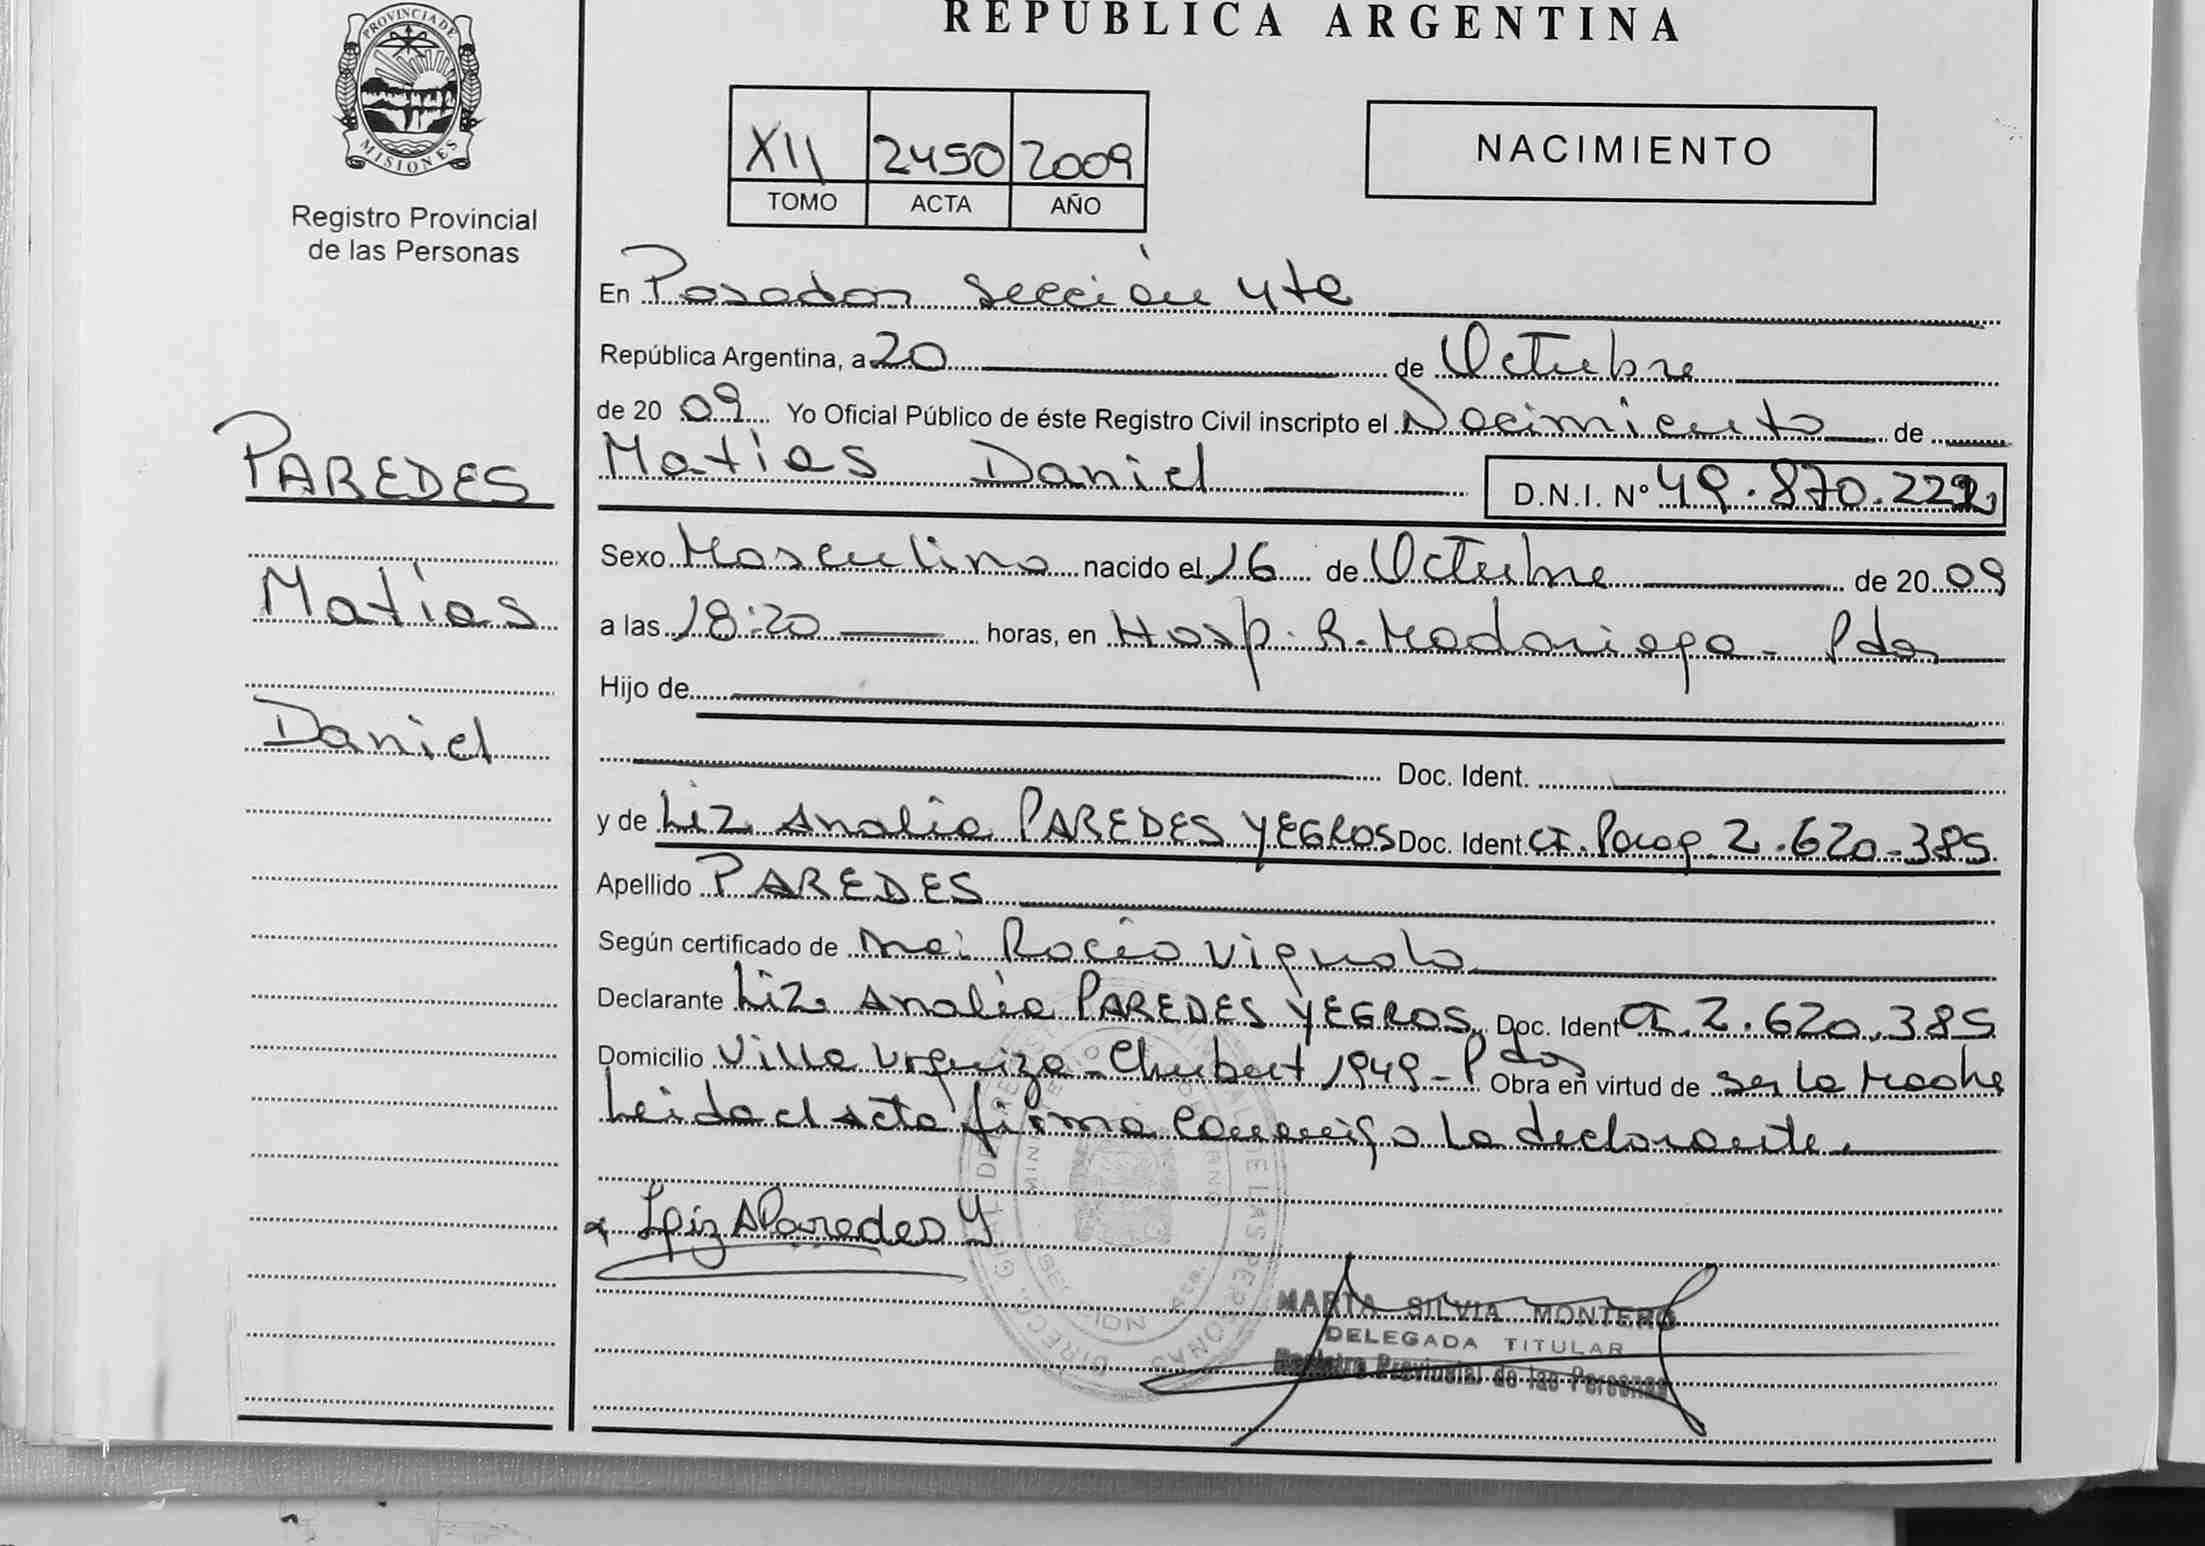 REPUBLICA ARGENTINA
PROVINCIA DE
MISIONES
Registro Provincial
de las Personas
XII 2450 2009
TOMO ACTA AÑO
NACIMIENTO
En Posadas Sección 4ta
República Argentina, a 20 de Octubre
de 20 09 Yo Oficial Público de éste Registro Civil inscripto el Nacimiento de
Matías Daniel D.N.I. Nº 49.870.222
Sexo Masculino nacido el 16 de Octubre de 20 09
a las 18:20 horas, en Hosp. R. Madariaga - Pdas
Hijo de
Doc. Ident.
y de Liz Analía PAREDES YEGROS Doc. Ident. CI. Parag. 2.620.385
Apellido PAREDES
Según certificado de Rocío Vignolo
Declarante Liz Analía PAREDES YEGROS Doc. Ident CI. 2.620.385
Domicilio Villa Urquiza - Chubut 1949 - Pdas Obra en virtud de ser la Madre
Leida el acta firma conmigo la declarante.
Liz A Paredes Y
MARTA SILVIA MONTERO
DELEGADA TITULAR
Registro Provincial de las Personas
PAREDES
Matías
Daniel